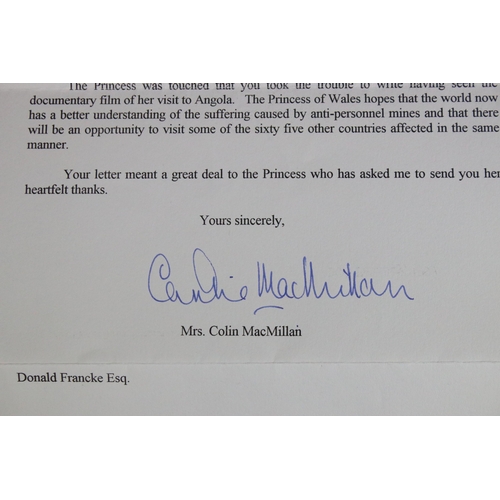 The Princess was touched that you took the trouble to write having seen the
documentary film of her visit to Angola. The Princess of Wales hopes that the world now
has a better understanding of the suffering caused by anti-personnel mines and that there
will be an opportunity to visit some of the sixty five other countries affected in the same
manner.
Your letter meant a great deal to the Princess who has asked me to send you her
heartfelt thanks.
Yours sincerely,
MacMillan
Mrs. Colin MacMillan
Donald Francke Esq.